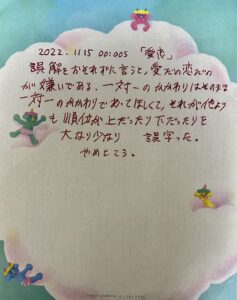 2022.11.15 00:005 「愛恋」
誤解をおそれずに言うと、愛だの恋だの
が嫌いである。一対一のかかわりはそのまま
一対一のかかわりであってほしくて、それが他より
も順位が上だったり下だったりを
大なり少なり 誤字った。
やめところ。